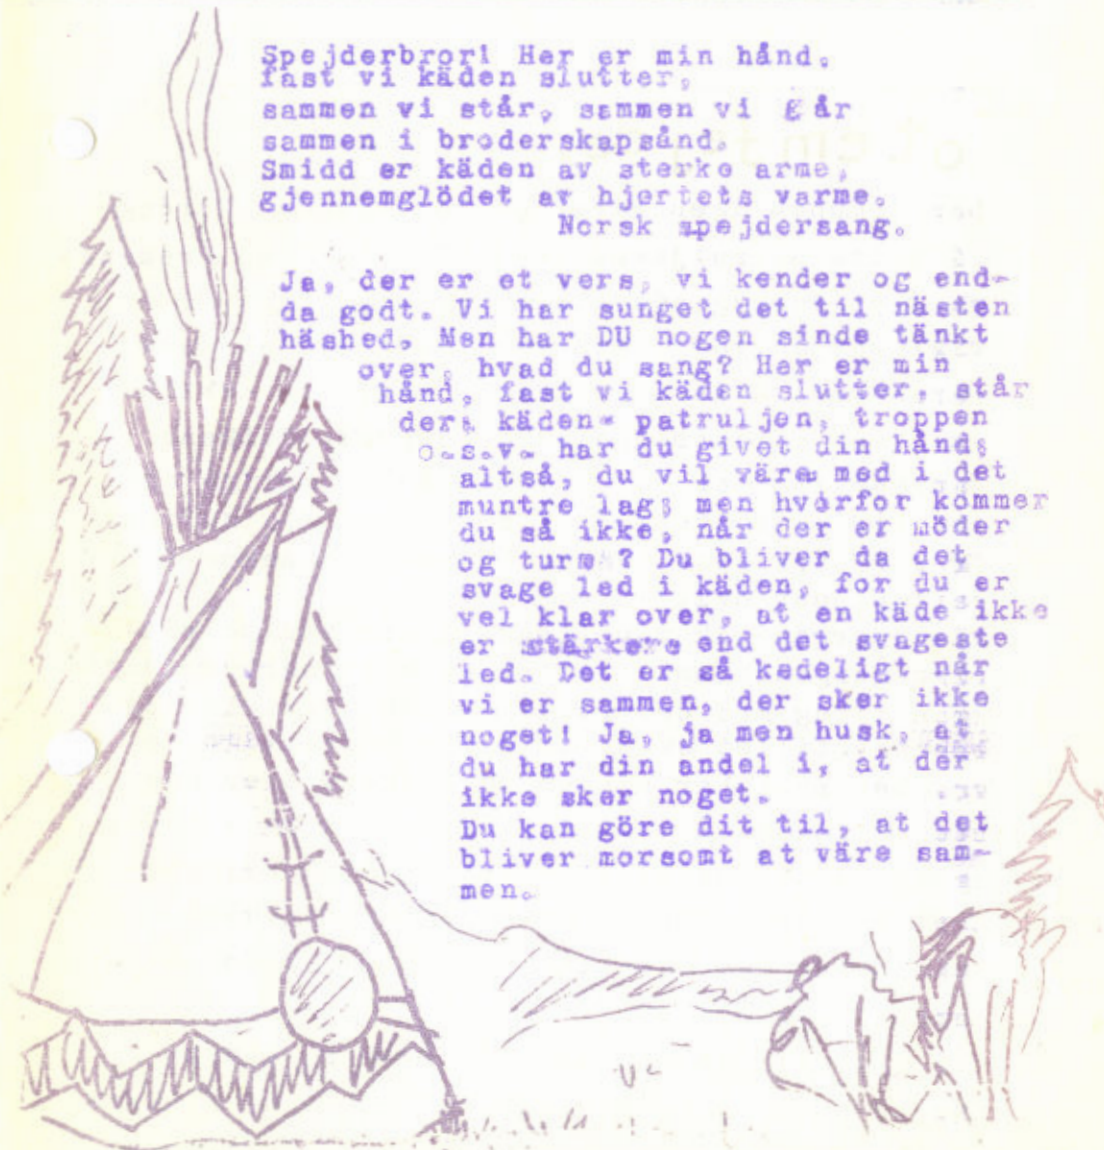 Spejderbror! Her er min hånd,
fast vi käden slutter,
sammen vi står, sammen vi går
sammen i broderskapsånd.
Smidd er käden av sterke arme,
gjennemglödet av hjertets varme.
Norsk spejdersang.
Ja, der er et vers, vi kender og end-
da godt. Vi har sunget det til nästen
häshed, Men har DU nogen sinde tänkt
over, hvad du sang? Her er min
hånd, fast vi käden slutter, står
der; käden- patruljen, troppen
o.s.v. har du givet din hånd;
altså, du vil väre med i det
muntre lag; men hvorfor kommer
du så ikke, når der er möder
og ture ? Du bliver da det
svage led i käden, for du er
vel klar over, at en käde ikke
er stärkere end det svageste
led. Det er så kedeligt når
vi er sammen, der sker ikke
noget! Ja, ja men husk, at
du har din andel i, at der
ikke sker noget.
Du kan göre dit til, at det
bliver morsomt at väre sam-
men.